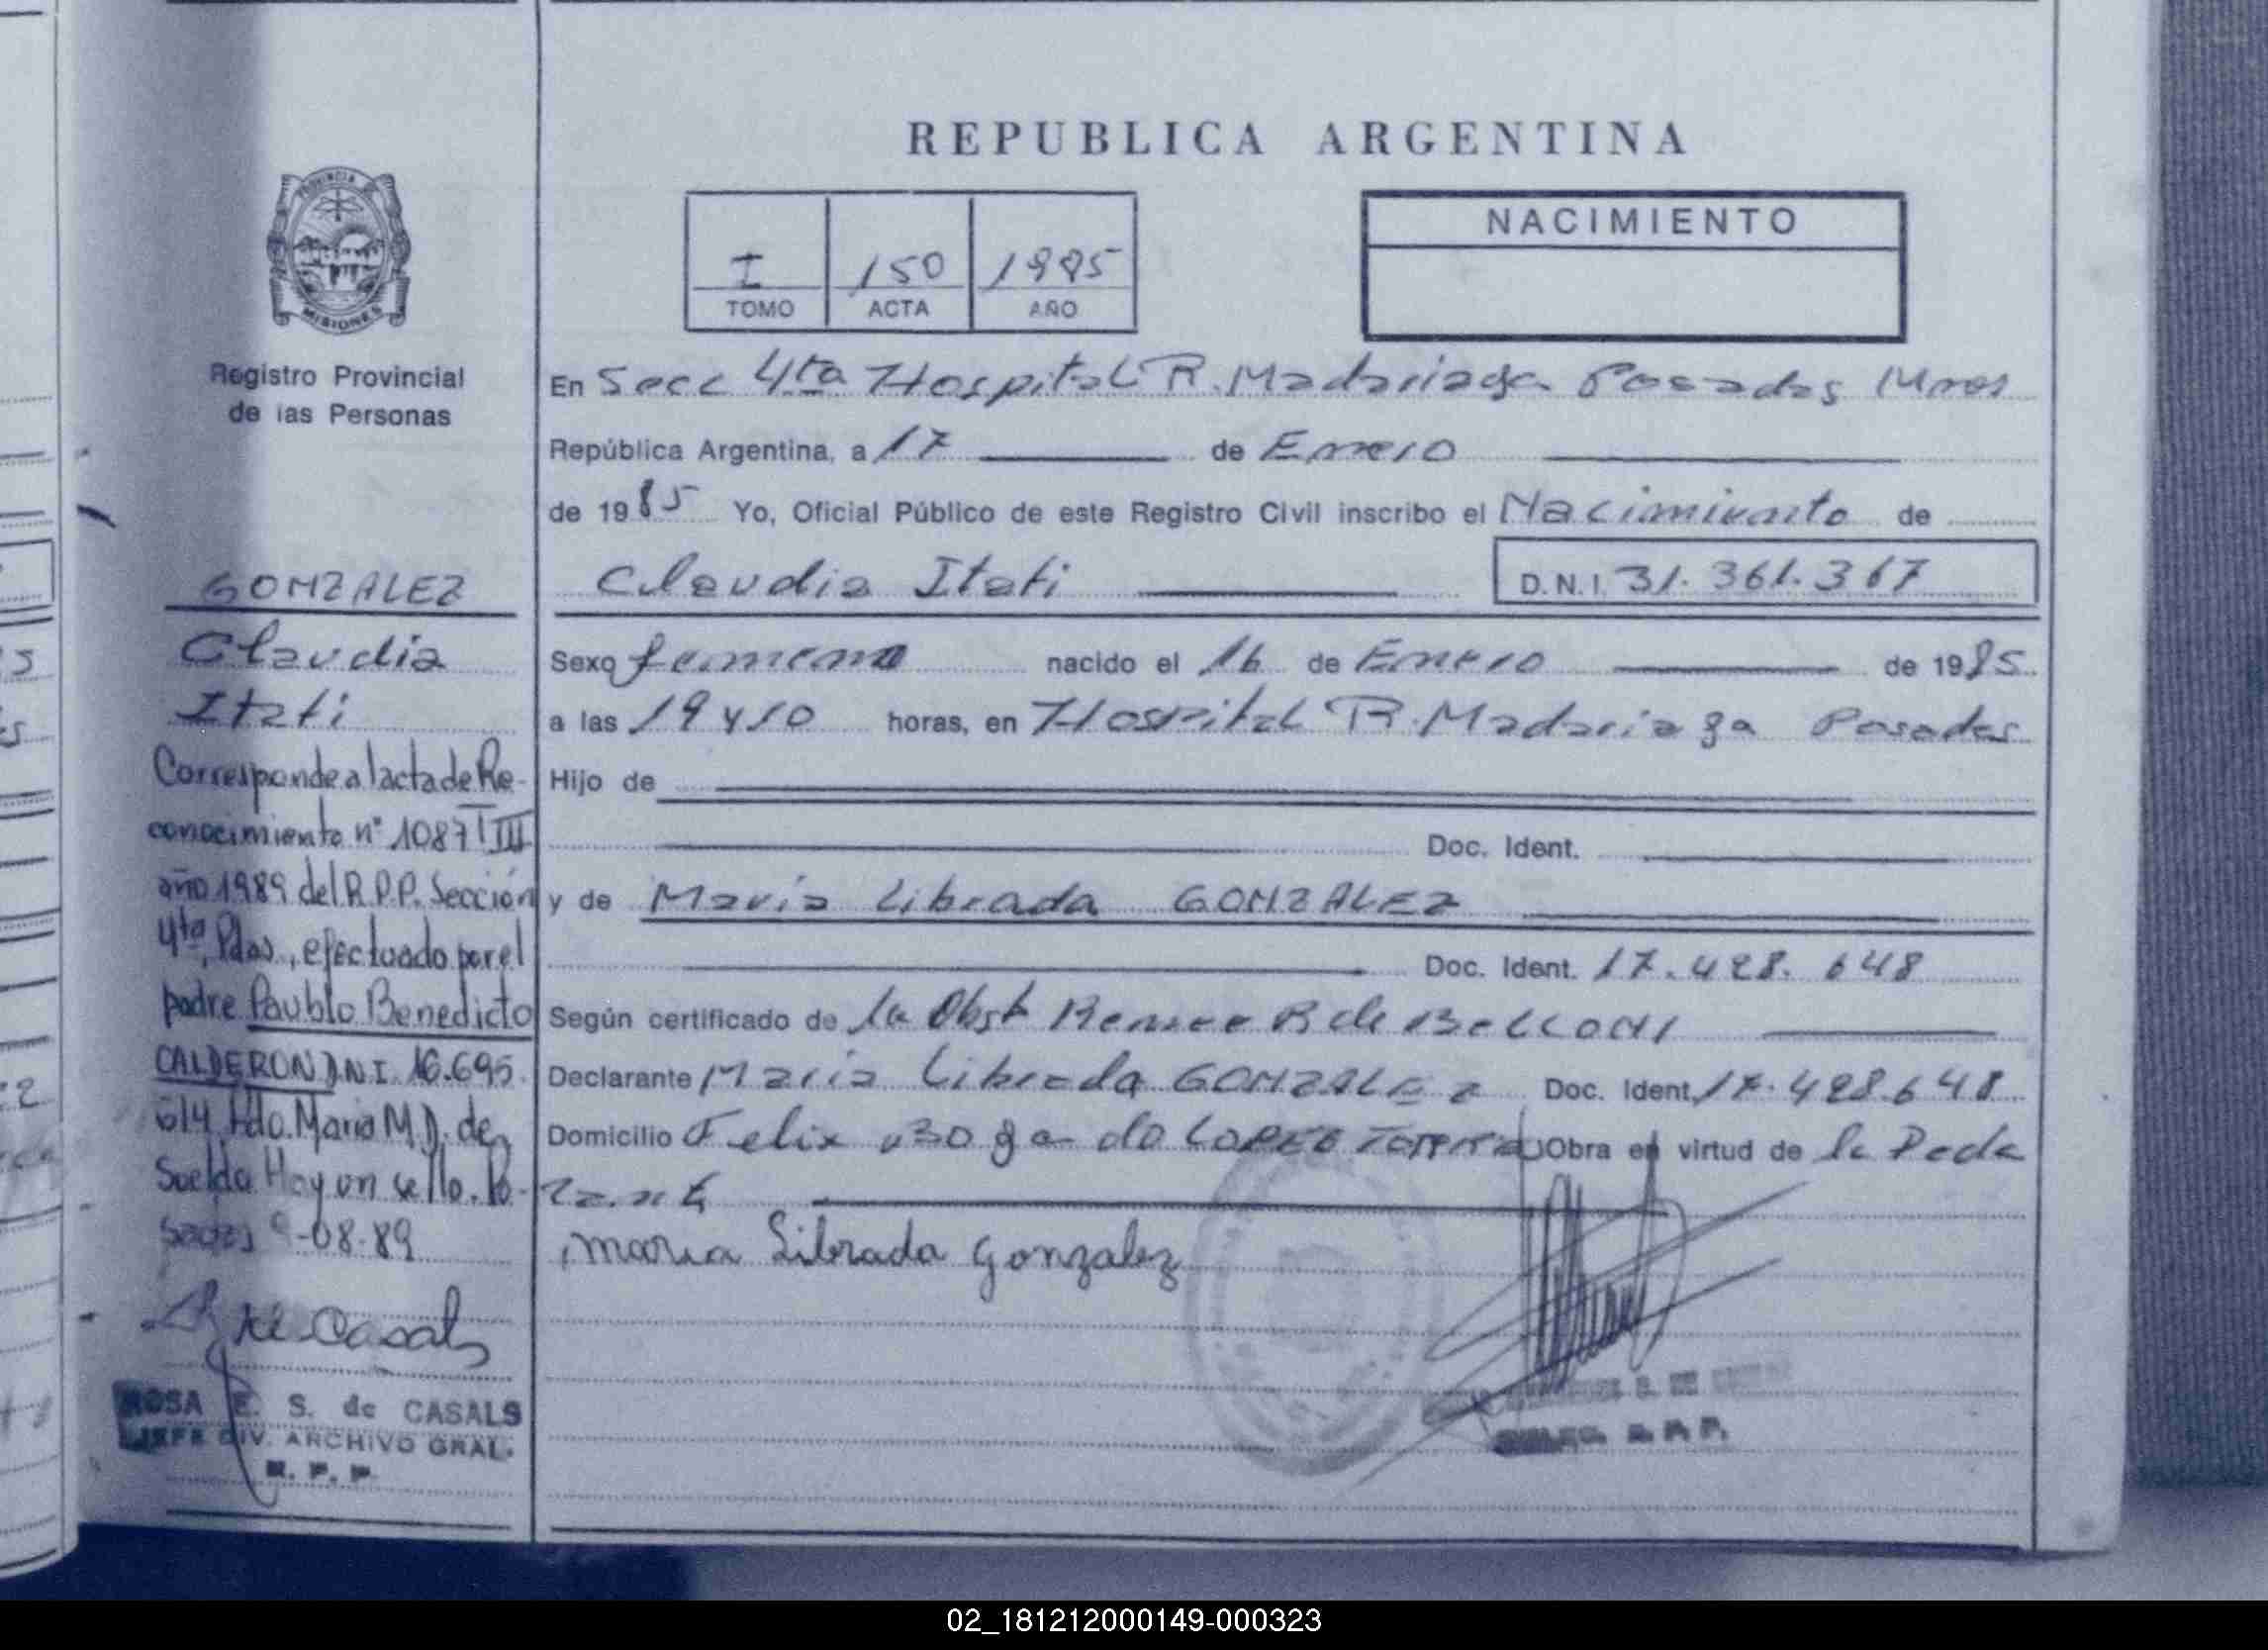 REPUBLICA ARGENTINA
PROVINCIA DE
MISIONES
Registro Provincial
de las Personas
I 150 1985
TOMO ACTA AÑO
NACIMIENTO
En Secc 4ta Hospital R. Madariaga Posadas Mnes
República Argentina, a 17 de Enero
de 1985 Yo, Oficial Público de este Registro Civil inscribo el Nacimiento de
Claudia Itati D.N.I. 31.361.367
Sexo femenino nacido el 16 de Enero de 1985
a las 19 y 10 horas, en Hospital R. Madariaga Posadas
Hijo de
Doc. Ident.
y de Maria Librada GONZALEZ
Doc. Ident. 17.428.648
Según certificado de la Obst Renee R de BELLONI
Declarante Maria Librada GONZALEZ Doc. Ident. 17.428.648
Domicilio Felix de Obra en virtud de la
Maria Librada Gonzalez
GONZALEZ
Claudia
Itati
Corresponde al acta de Re-
conocimiento nº 1087 T III
año 1989 del R.P.P. Sección
4ta, Pdas., efectuado por el
padre Paublo Benedicto
CALDERON D.N.I. 16.695.
614 Fdo. Maria M. D. de
Suelda Hay un sello. Po-
sadas 9-08-89
de Casals
ROSA E. S. de CASALS
JEFE DIV. ARCHIVO GRAL.
R. P. P.
02_181212000149-000323